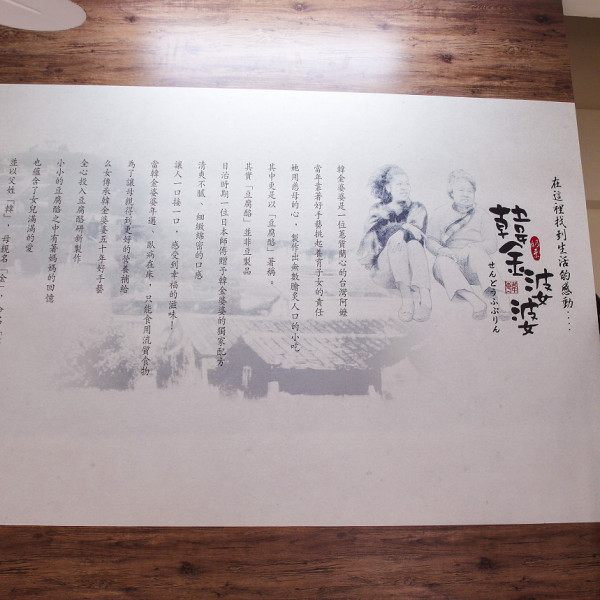 在這裡找到生活的感動....
韓金婆婆
せんどうふぷりん
韓金婆婆是一位蕙質蘭心的台灣阿嬤
當年靠著好手藝挑起養育子女的責任
她用慈母的心，製作出無數膾炙人口的小吃
其中更是以「豆腐酪」著稱。
其實「豆腐酪」並非豆製品
日治時期一位日本師傅贈予韓金婆婆的獨家配方
清爽不膩、細緻綿密的口感
讓人一口接一口，感受到幸福的滋味！
當韓金婆婆年邁、臥病在床，只能食用流質食物
為了讓母親得到更好的營養補給
么女傳承韓金婆婆五十年好手藝
全心投入豆腐酪研新製作
小小的豆腐酪之中有著媽媽的回憶
也蘊含了女兒滿滿的愛
並以父姓「韓」，母親名「金」，